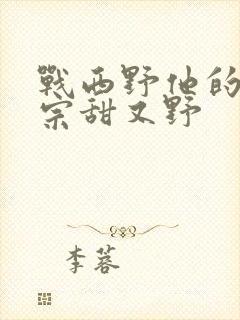 戰西野他的
宗甜又野
李蓉